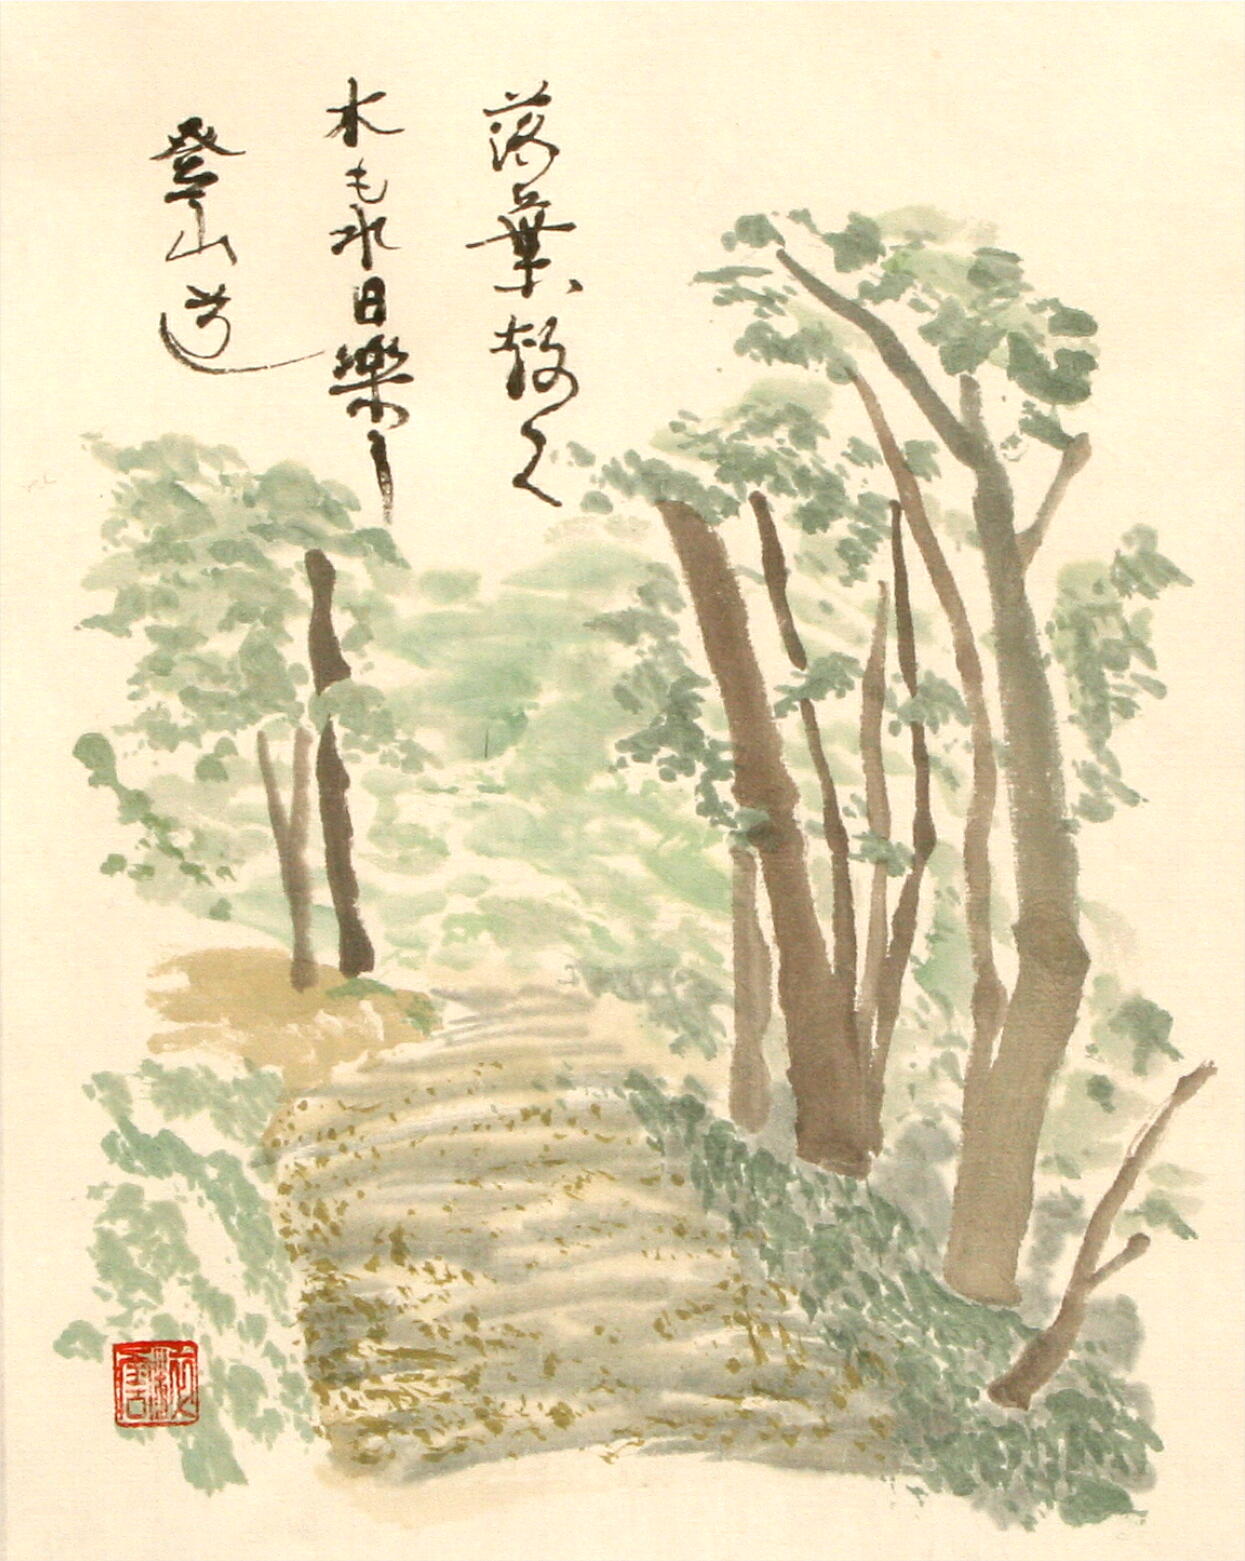 落葉敷く
木もれ日樂し
登山道